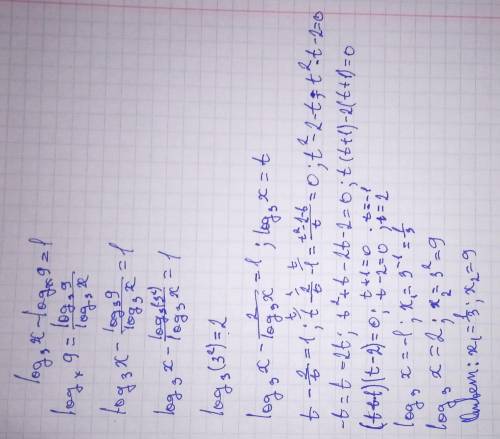 log₃x - logₓ9 = 1
logₓ9 = log₃9/log₃x
log₃x - log₃9/log₃x = 1
log₃x - log₃(3²)/log₃x = 1
log₃(3²) = 2
log₃x - 2/log₃x = 1; log₃x = t
t - 2/t = 1; t - 2/t - 1 = (t²-2-t)/t = 0; t²-2-t = t²-t-2=0
-t = t = 2t; t²+t-2t-2=0; t(t+1)-2(t+1)=0
(t+1)(t-2)=0; t+1=0 t=-1
t-2=0; t=2
log₃x=-1; x₁=3⁻¹=1/3
log₃x=2; x₂=3²=9
Ответ: x₁=1/3; x₂=9